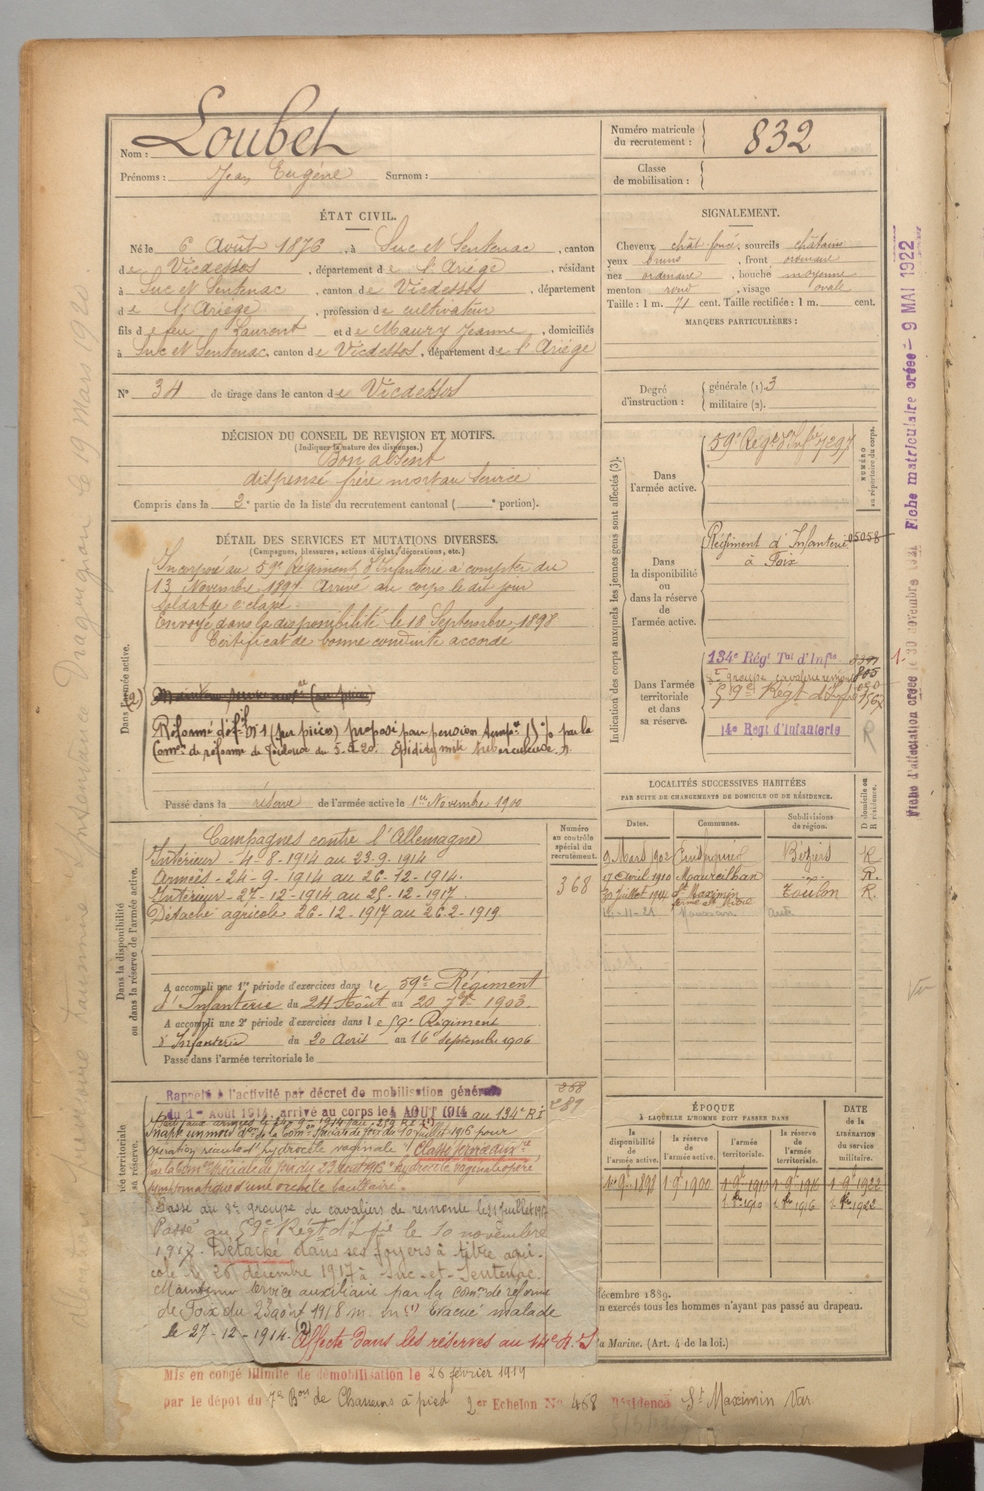 Nom : Loubet
Prénoms : Jean Eugène Surnom :
Numéro matricule du recrutement : 832
Classe de mobilisation :
ÉTAT CIVIL.
Né le 6 Août 1876, à Suc et Sentenac, canton
de Vicdessos, département de l'Ariège, résidant
à Suc et Sentenac, canton de Vicdessos, département
de l'Ariège, profession de cultivateur
fils de feu Laurent et de Maury Jeanne, domiciliés
à Suc et Sentenac, canton de Vicdessos, département de l'Ariège
N° 34 de tirage dans le canton de Vicdessos
SIGNALEMENT.
Cheveux chât foncé, sourcils châtains
yeux bruns, front ordinaire
nez ordinaire, bouche moyenne
menton rond, visage ovale
Taille : 1 m. 71 cent. Taille rectifiée : 1 m. cent.
MARQUES PARTICULIÈRES :
Degré d'instruction : générale (1) 3
militaire (2).
DÉCISION DU CONSEIL DE REVISION ET MOTIFS.
(Indiquer la nature des dispenses.)
Bon absent
dispensé frère mort au service
Compris dans la 2e partie de la liste du recrutement cantonal ( e portion).
DÉTAIL DES SERVICES ET MUTATIONS DIVERSES.
(Campagnes, blessures, actions d'éclat, décorations, etc.)
Dans l'armée active.
Incorporé au 59e Régiment d'Infanterie à compter du
13 Novembre 1897 Arrivé au corps le dit jour
soldat de 2e classe.
Envoyé dans la disponibilité le 18 Septembre 1898
Certificat de bonne conduite accordé
(2)
Réformé déf. n° 1 (sur pièces) proposé pour pension temp.re par la
Comon de réforme de Toulouse du Epididymite tuberculeuse.
Passé dans la réserve de l'armée active le 1er Novembre 1900
Indication des corps auxquels les jeunes gens sont affectés (3).
Dans l'armée active. 59e Régt d'Inf.rie 7297
NUMÉRO au répertoire du corps.
Dans la disponibilité ou dans la réserve de l'armée active.
Régiment d'Infanterie 05058
à Foix
Dans l'armée territoriale et dans sa réserve.
134e Régt Tal d'Inf.ie
8e groupe cavaliers remonte 805
59e Régt d'Inf
14e Regt d'Infanterie
R
LOCALITÉS SUCCESSIVES HABITÉES
PAR SUITE DE CHANGEMENTS DE DOMICILE OU DE RÉSIDENCE.
Dates. Communes. Subdivisions de région. D domicile ou R résidence.
9 Mars 1902 Puisserguier Béziers R
17 Avril 1910 Maureilhan -do- R.
30 Juillet 1914 St Maximin Toulon R.
Dans la disponibilité ou dans la réserve de l'armée active.
Numéro au contrôle spécial du recrutement.
368
Campagnes contre l'Allemagne
Intérieur - 4-8-1914 au 23-9-1914
Armées - 24-9-1914 au 26-12-1914.
Intérieur - 27-12-1914 au 25-12-1917.
Détaché agricole 26-12-1917 au 26-2-1919.
A accompli une 1re période d'exercices dans le 59e Régiment
d'Infanterie du 24 Août au 20 7bre 1903.
A accompli une 2e période d'exercices dans le 59e Régiment
d'Infanterie du 20 Août au 16 Septembre 1906
Passé dans l'armée territoriale le
Rappelé à l'activité par décret de mobilisation générale
du 1er Août 1914, arrivé au corps le 4 AOUT 1914 au 134e R.I
Parti aux armées le 24-9-1914 au 259 R.I.
Inapte un mois don de la Comon spéciale de Foix du 10 juillet 1916 pour
opération récente d'hydrocèle vaginale. Classé service aux.re
par la Comon spéciale de Foix du 23 août 1916 hydrocèle vaginale opérée
Passé au 8e groupe de cavaliers de remonte le 21 juillet 1917
Passé au 59e Régt d'Inf.ie le 10 novembre
1917. Détaché dans ses foyers à titre agri-
cole le 26 décembre 1917 à Suc-et-Sentenac.
Maintenu service auxiliaire par la Comon de réforme
de Foix du 23 août 1918 Evacué malade
le 27-12-1914. (2) Affecté dans les réserves au 14e R.I
ÉPOQUE
À LAQUELLE L'HOMME DOIT PASSER DANS
la disponibilité de l'armée active. la réserve de l'armée active. l'armée territoriale. la réserve de l'armée territoriale. DATE de la LIBÉRATION du service militaire.
1er 9bre 1898 1 9bre 1900 1 9bre 1910 1 9bre 1916 1 9bre 1922
1 8bre 1910 1 8bre 1916 1 8bre 1922
décembre 1889.
n exercés tous les hommes n'ayant pas passé au drapeau.
a Marine. (Art. 4 de la loi.)
Mis en congé illimité de démobilisation le 26 février 1919
par le dépôt du 7e Bon de Chasseurs à pied 2er Echelon No 468 Résidence St Maximin Var
Fiche matriculaire créée - 9 MAI 1922